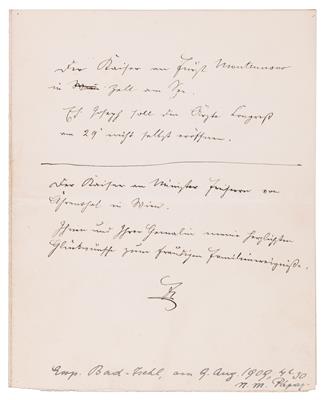 Der Kaiser an Fürst Montenuovo
in Zell am See.
Eh Joseph soll den Ärzte Congreß
am 29' nicht selbst eröffnen.
Der Kaiser an Minister Freiherrn von
Ährenthal in Wien.
Ihnen und Ihrer Gemalin meine herzlichsten
Glückwünsche zum freudigen Familienereigniße.
Exp. Bad-Ischl, am 9. Aug. 1909,
n. m.